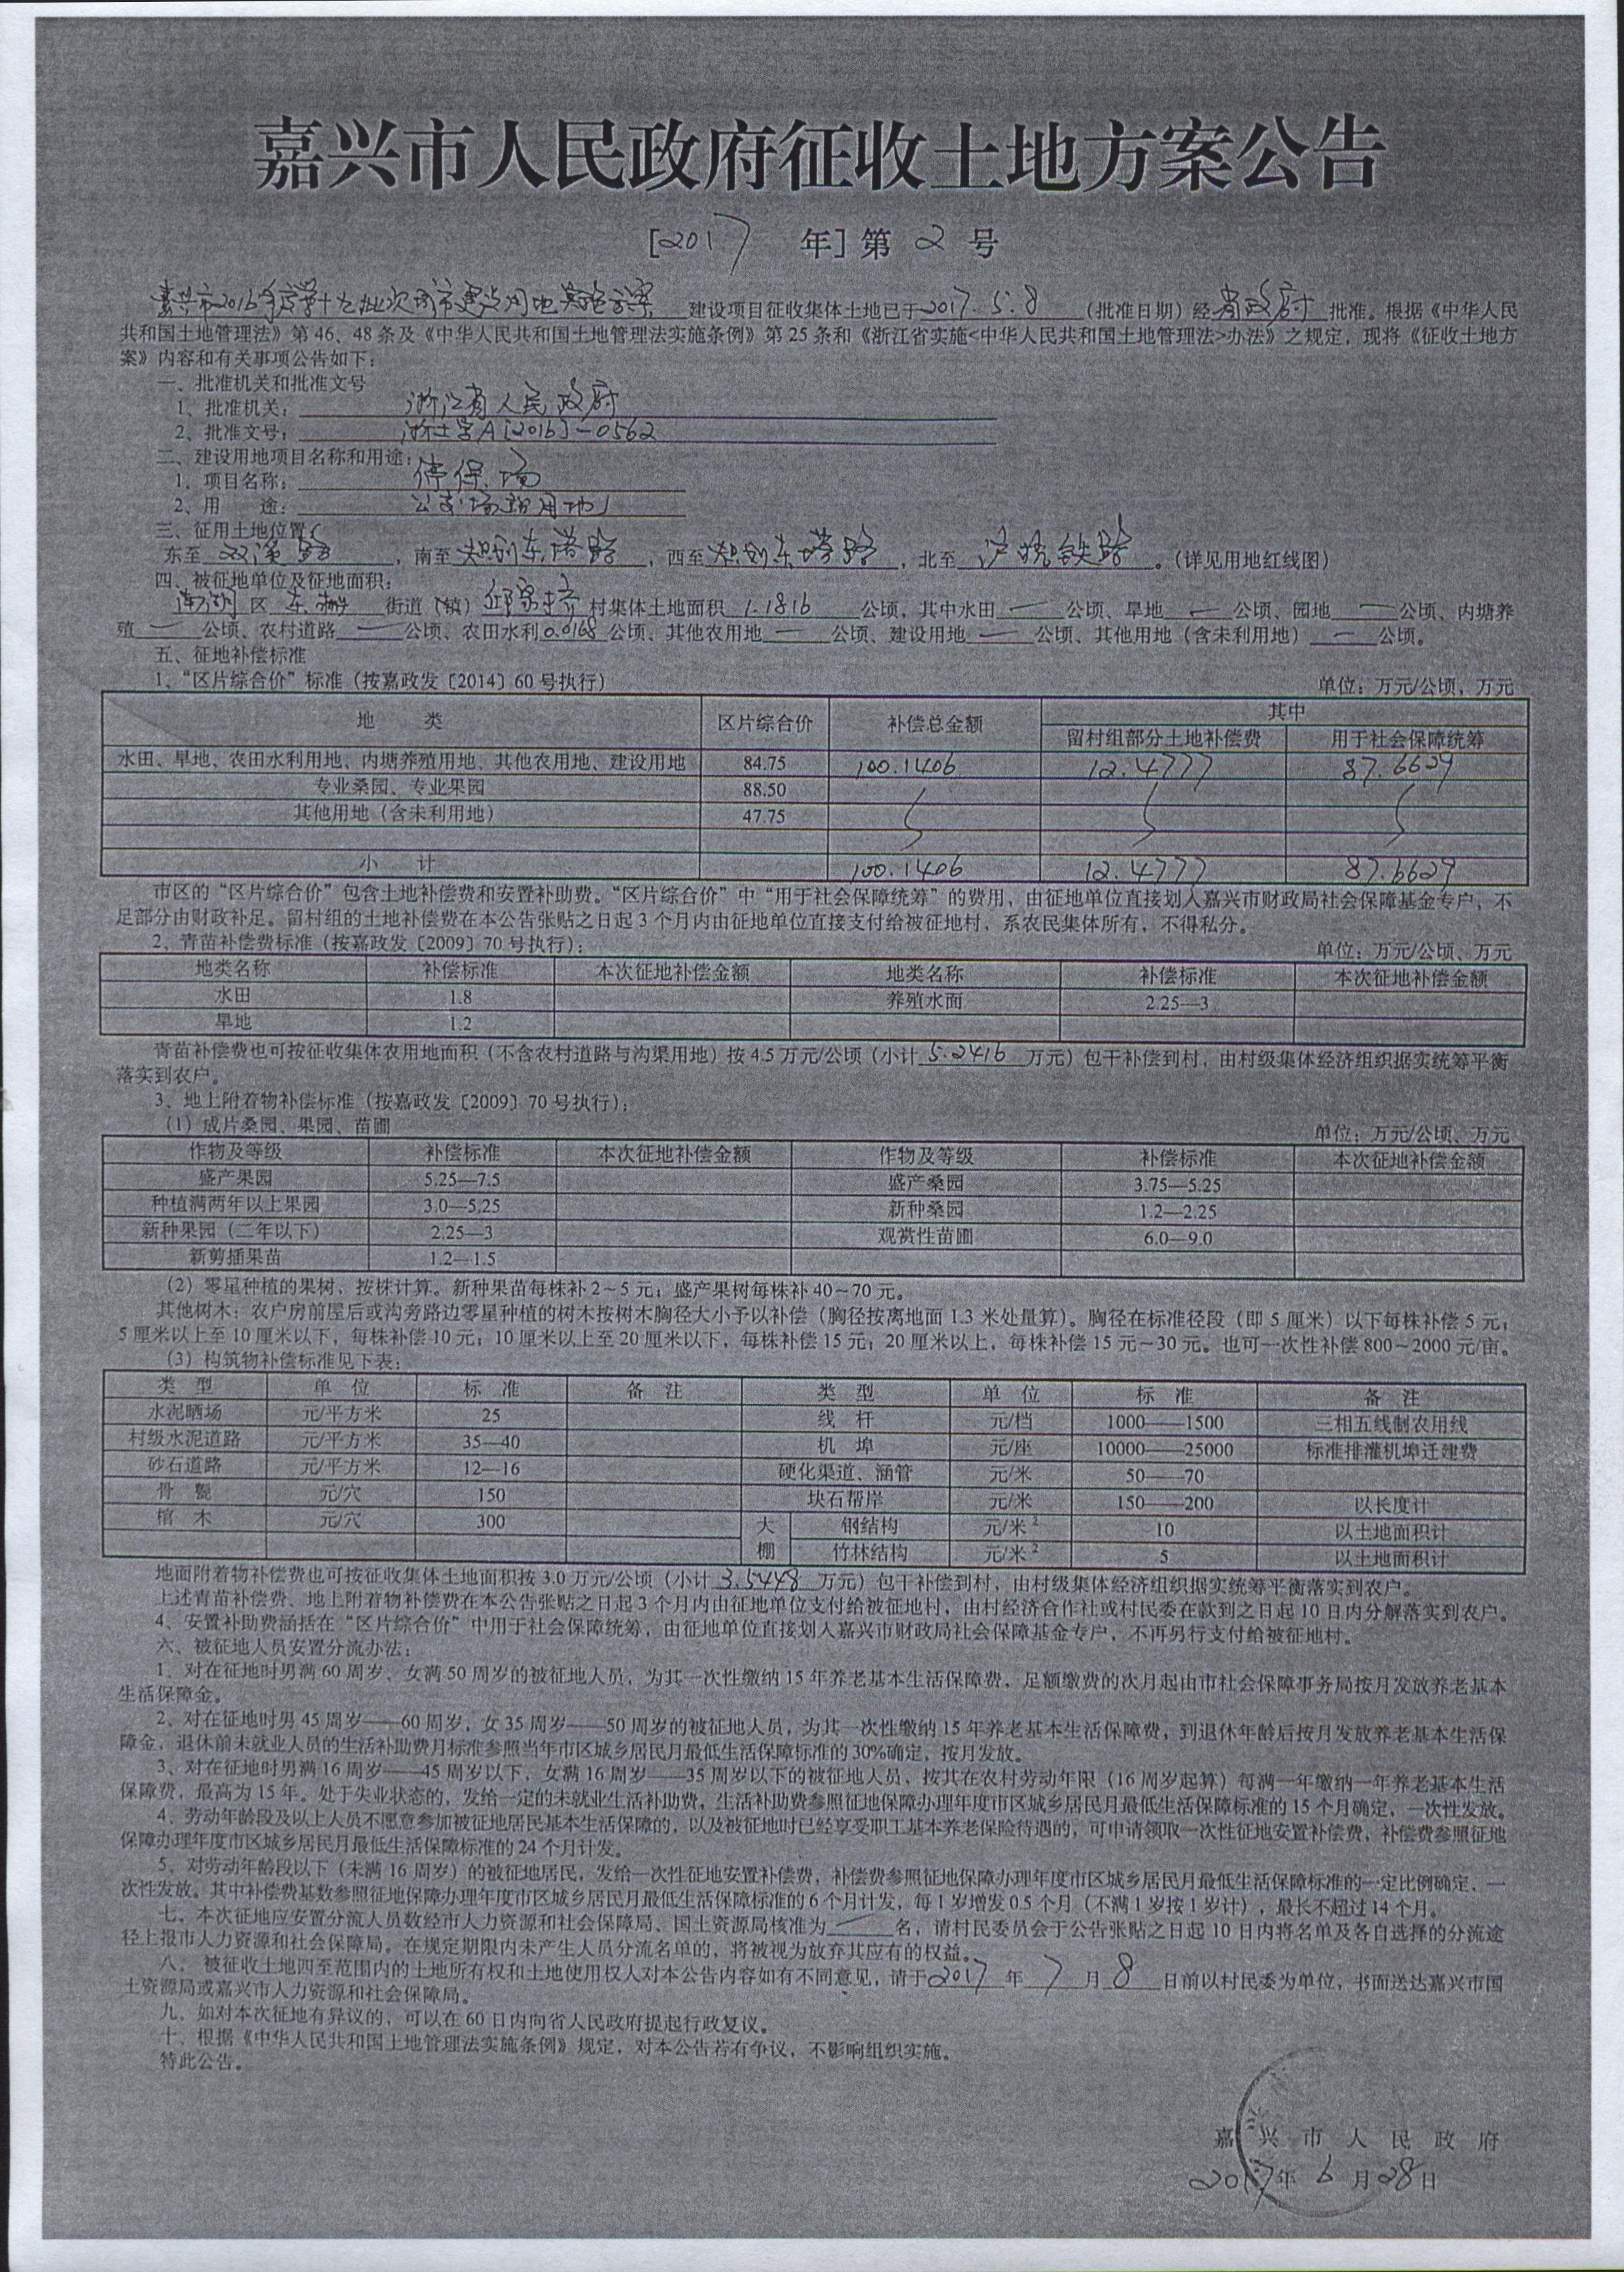 嘉兴市人民政府征收土地方案公告
[2017 年] 第 2 号
嘉兴市2016年度第十七批次城市建设用地实施方案 建设项目征收集体土地已于2017.5.8(批准日期)经省政府批准。根据《中华人民
共和国土地管理法》第46、48条及《中华人民共和国土地管理法实施条例》第25条和《浙江省实施<中华人民共和国土地管理法>办法》之规定,现将《征收土地方
案》内容和有关事项公告如下:
一、批准机关和批准文号
1、批准机关: 浙江省人民政府
2、批准文号: 浙土字A[2016]-0562
二、建设用地项目名称和用途:
1、项目名称: 停保场
2、用 途: 公交场站用地
三、征用土地位置
东至 双溪路 ,南至 规划东塔路 ,西至 规划东塔路 ,北至 沪杭铁路 。(详见用地红线图)
四、被征地单位及征地面积:
南湖 区 东栅 街道(镇) 村集体土地面积 1.1816 公顷,其中水田 — 公顷、旱地 — 公顷、园地 — 公顷、内塘养
殖 — 公顷、农村道路 — 公顷、农田水利0.0168 公顷、其他农用地 — 公顷、建设用地 — 公顷、其他用地(含未利用地) — 公顷。
五、征地补偿标准
1、“区片综合价”标准(按嘉政发〔2014〕60号执行) 单位:万元/公顷,万元
地 类 区片综合价 补偿总金额 其中
留村组部分土地补偿费 用于社会保障统筹
水田、旱地、农田水利用地、内塘养殖用地、其他农用地、建设用地 84.75 100.1406 12.4777 87.6629
专业桑园、专业果园 88.50
其他用地(含未利用地) 47.75
小 计 100.1406 12.4777 87.6629
市区的“区片综合价”包含土地补偿费和安置补助费。“区片综合价”中“用于社会保障统筹”的费用,由征地单位直接划入嘉兴市财政局社会保障基金专户,不
足部分由财政补足。留村组的土地补偿费在本公告张贴之日起3个月内由征地单位直接支付给被征地村,系农民集体所有,不得私分。
2、青苗补偿费标准(按嘉政发〔2009〕70号执行): 单位:万元/公顷、万元
地类名称 补偿标准 本次征地补偿金额 地类名称 补偿标准 本次征地补偿金额
水田 1.8 养殖水面 2.25—3
旱地 1.2
青苗补偿费也可按征收集体农用地面积(不含农村道路与沟渠用地)按4.5万元/公顷(小计 5.2416 万元)包干补偿到村,由村级集体经济组织据实统筹平衡
落实到农户。
3、地上附着物补偿标准(按嘉政发〔2009〕70号执行):
(1)成片桑园、果园、苗圃 单位:万元/公顷、万元
作物及等级 补偿标准 本次征地补偿金额 作物及等级 补偿标准 本次征地补偿金额
盛产果园 5.25—7.5 盛产桑园 3.75—5.25
种植满两年以上果园 3.0—5.25 新种桑园 1.2—2.25
新种果园(二年以下) 2.25—3 观赏性苗圃 6.0—9.0
新剪插果苗 1.2—1.5
(2)零星种植的果树,按株计算。新种果苗每株补2~5元;盛产果树每株补40~70元。
其他树木:农户房前屋后或沟旁路边零星种植的树木按树木胸径大小予以补偿(胸径按离地面1.3米处量算)。胸径在标准径段(即5厘米)以下每株补偿5元;
5厘米以上至10厘米以下,每株补偿10元;10厘米以上至20厘米以下,每株补偿15元;20厘米以上,每株补偿15元~30元。也可一次性补偿800~2000元/亩。
(3)构筑物补偿标准见下表:
类 型 单 位 标 准 备 注 类 型 单 位 标 准 备 注
水泥晒场 元/平方米 25 线 杆 元/档 1000——1500 三相五线制农用线
村级水泥道路 元/平方米 35—40 机 埠 元/座 10000——25000 标准排灌机埠迁建费
砂石道路 元/平方米 12—16 硬化渠道、涵管 元/米 50——70
骨 甏 元/穴 150 块石帮岸 元/米 150——200 以长度计
棺 木 元/穴 300 大棚 钢结构 元/米² 10 以土地面积计
竹林结构 元/米² 5 以土地面积计
地面附着物补偿费也可按征收集体土地面积按3.0万元/公顷(小计 3.5448 万元)包干补偿到村,由村级集体经济组织据实统筹平衡落实到农户。
上述青苗补偿费、地上附着物补偿费在本公告张贴之日起3个月内由征地单位支付给被征地村,由村经济合作社或村民委在款到之日起10日内分解落实到农户。
4、安置补助费涵括在“区片综合价”中用于社会保障统筹,由征地单位直接划入嘉兴市财政局社会保障基金专户,不再另行支付给被征地村。
六、被征地人员安置分流办法:
1、对在征地时男满60周岁、女满50周岁的被征地人员,为其一次性缴纳15年养老基本生活保障费,足额缴费的次月起由市社会保障事务局按月发放养老基本
生活保障金。
2、对在征地时男45周岁——60周岁,女35周岁——50周岁的被征地人员,为其一次性缴纳15年养老基本生活保障费,到退休年龄后按月发放养老基本生活保
障金,退休前未就业人员的生活补助费月标准参照当年市区城乡居民月最低生活保障标准的30%确定,按月发放。
3、对在征地时男满16周岁——45周岁以下,女满16周岁——35周岁以下的被征地人员,按其在农村劳动年限(16周岁起算)每满一年缴纳一年养老基本生活
保障费,最高为15年。处于失业状态的,发给一定的未就业生活补助费,生活补助费参照征地保障办理年度市区城乡居民月最低生活保障标准的15个月确定,一次性发放。
4、劳动年龄段及以上人员不愿意参加被征地居民基本生活保障的,以及被征地时已经享受职工基本养老保险待遇的,可申请领取一次性征地安置补偿费,补偿费参照征地
保障办理年度市区城乡居民月最低生活保障标准的24个月计发。
5、对劳动年龄段以下(未满16周岁)的被征地居民,发给一次性征地安置补偿费,补偿费参照征地保障办理年度市区城乡居民月最低生活保障标准的一定比例确定,一
次性发放。其中补偿费基数参照征地保障办理年度市区城乡居民月最低生活保障标准的6个月计发,每1岁增发0.5个月(不满1岁按1岁计),最长不超过14个月。
七、本次征地应安置分流人员数经市人力资源和社会保障局、国土资源局核准为 — 名,请村民委员会于公告张贴之日起10日内将名单及各自选择的分流途
径上报市人力资源和社会保障局。在规定期限内未产生人员分流名单的,将被视为放弃其应有的权益。
八、被征收土地四至范围内的土地所有权和土地使用权人对本公告内容如有不同意见,请于2017 年 7 月 8 日前以村民委为单位,书面送达嘉兴市国
土资源局或嘉兴市人力资源和社会保障局。
九、如对本次征地有异议的,可以在60日内向省人民政府提起行政复议。
十、根据《中华人民共和国土地管理法实施条例》规定,对本公告若有争议,不影响组织实施。
特此公告。
嘉兴市人民政府
2017年6月28日